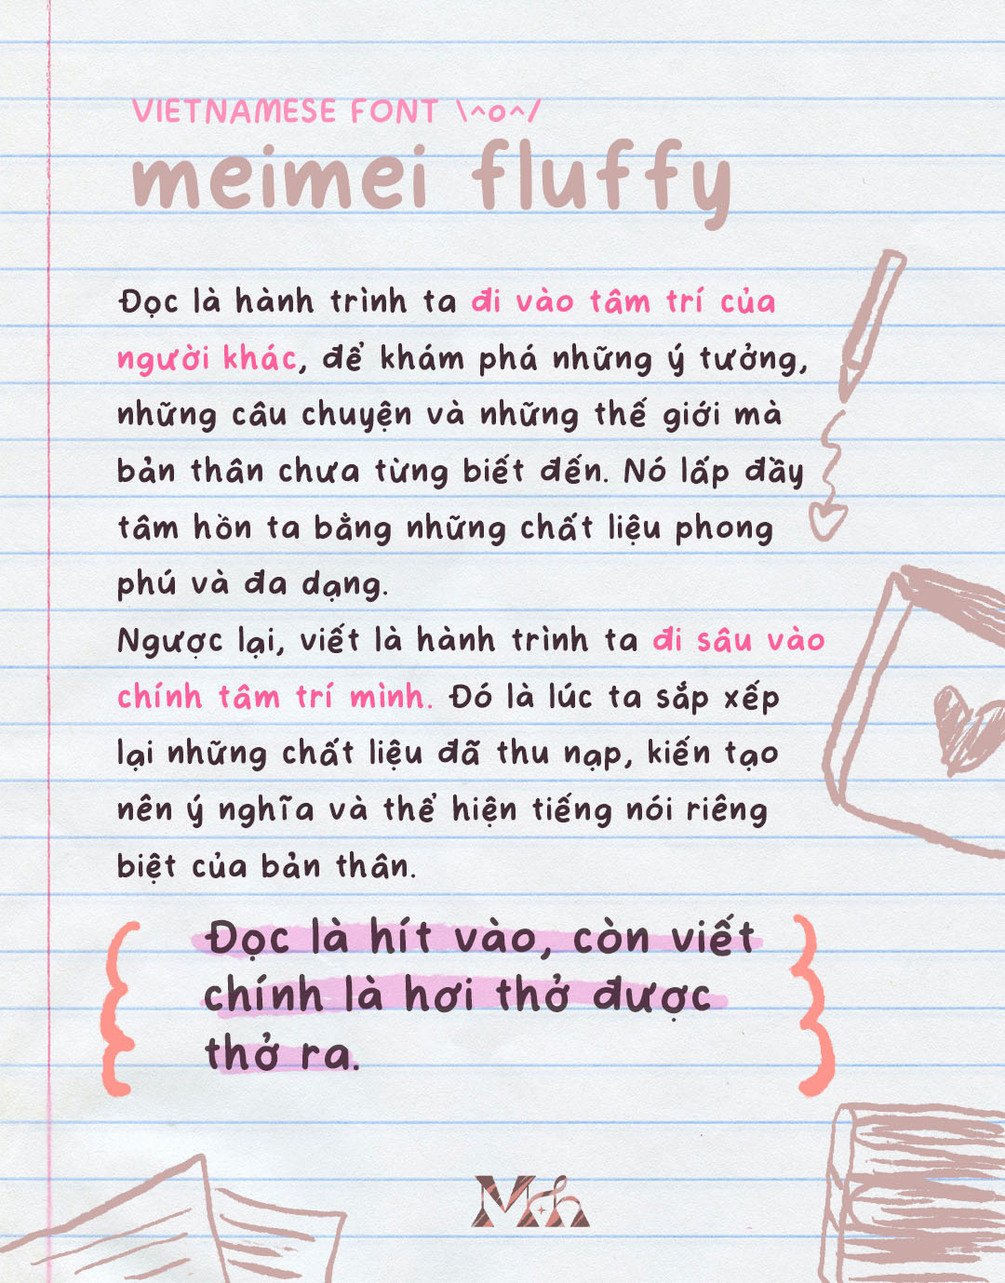 VIETNAMESE FONT \^o^/
meimei fluffy
Đọc là hành trình ta đi vào tâm trí của
người khác, để khám phá những ý tưởng,
những câu chuyện và những thế giới mà
bản thân chưa từng biết đến. Nó lấp đầy
tâm hồn ta bằng những chất liệu phong
phú và đa dạng.
Ngược lại, viết là hành trình ta đi sâu vào
chính tâm trí mình. Đó là lúc ta sắp xếp
lại những chất liệu đã thu nạp, kiến tạo
nên ý nghĩa và thể hiện tiếng nói riêng
biệt của bản thân.
Đọc là hít vào, còn viết
chính là hơi thở được
thở ra.